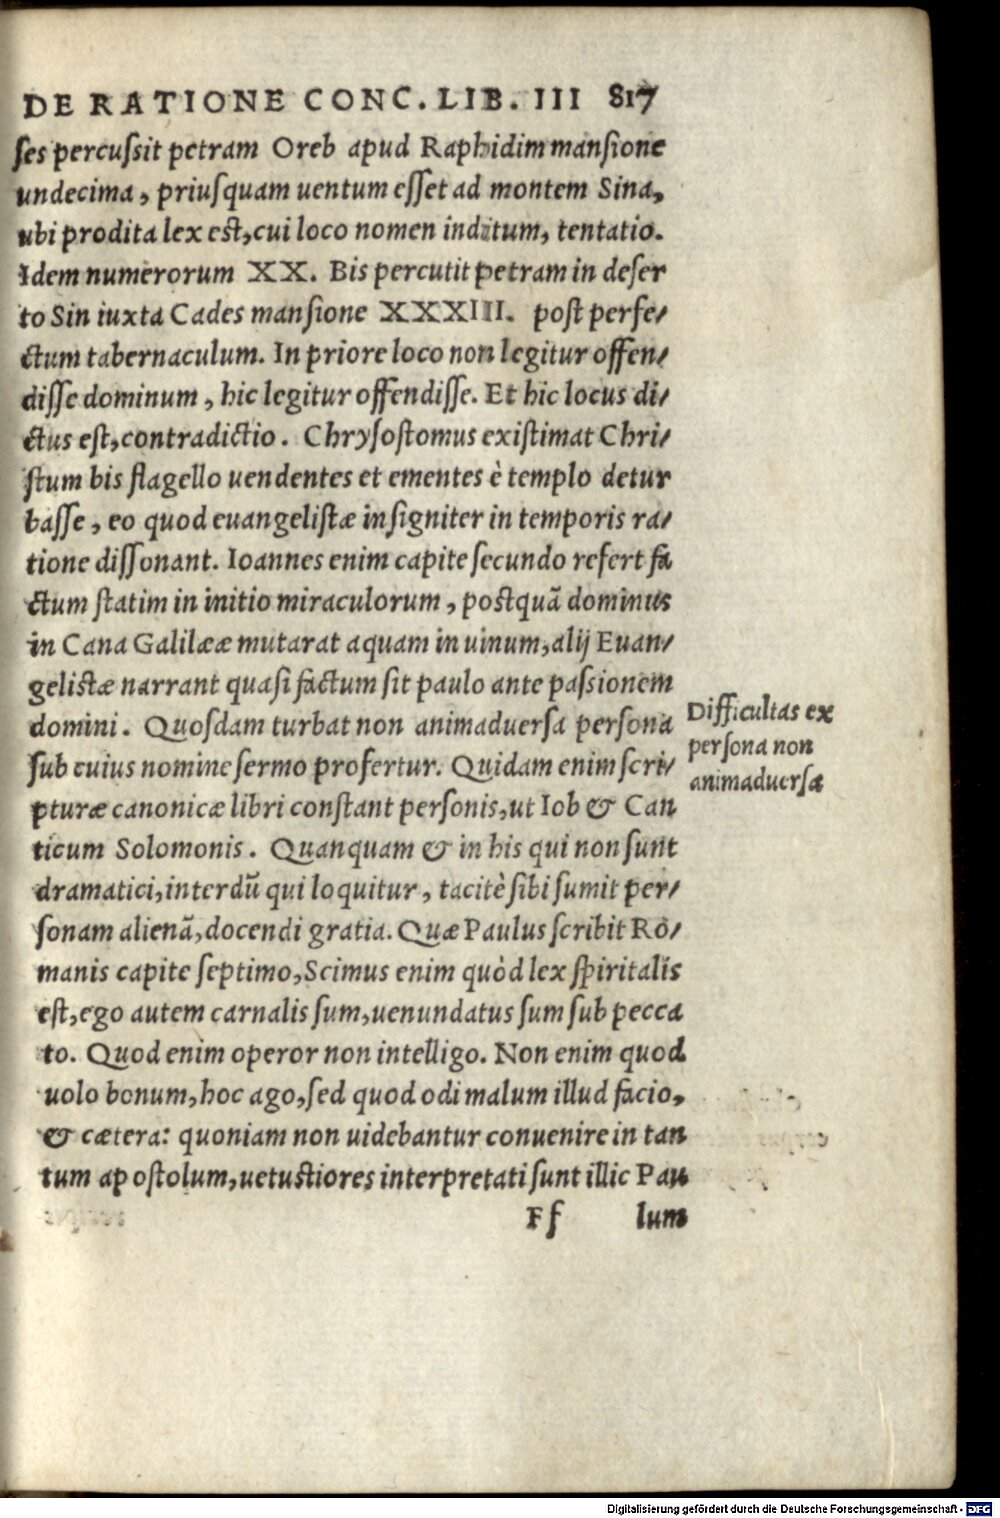 DE RATIONE CONC. LIB. III 817
ſes percuſsit petram Oreb apud Raphidim manſione
undecima, priuſquam uentum eſſet ad montem Sina,
ubi prodita lex eſt, cui loco nomen inditum, tentatio.
Idem numerorum XX. Bis percutit petram in deſer
to Sin iuxta Cades manſione XXXIII. poſt perfe/
ctum tabernaculum. In priore loco non legitur offen/
diſſe dominum, hic legitur offendiſſe. Et hic locus di/
ctus eſt, contradictio. Chryſoſtomus exiſtimat Chri/
ſtum bis flagello uendentes et ementes è templo detur
baſſe, eo quod euangeliſtæ inſigniter in temporis ra/
tione diſſonant. Ioannes enim capite ſecundo refert fa
ctum ſtatim in initio miraculorum, poſtquã dominus
in Cana Galilææ mutarat aquam in uinum, alij Euan/
geliſtæ narrant quaſi factum ſit paulo ante paſsionem
domini. Quoſdam turbat non animaduerſa perſona
ſub cuius nomine ſermo profertur. Quidam enim ſcri/
pturæ canonicæ libri conſtant perſonis, ut Iob & Can
ticum Solomonis. Quanquam & in his qui non ſunt
dramatici, interdũ qui loquitur, tacitè ſibi ſumit per/
ſonam alienã, docendi gratia. Quæ Paulus ſcribit Ro/
manis capite ſeptimo, Scimus enim quòd lex ſpiritalis
eſt, ego autem carnalis ſum, uenundatus ſum ſub pecca
to. Quod enim operor non intelligo. Non enim quod
uolo bonum, hoc ago, ſed quod odi malum illud facio,
& cætera: quoniam non uidebantur conuenire in tan
tum apoſtolum, uetuſtiores interpretati ſunt illic Pau
Ff lum
Difficultas ex
perſona non
animaduerſa
Digitalisierung gefördert durch die Deutsche Forschungsgemeinschaft - DFG